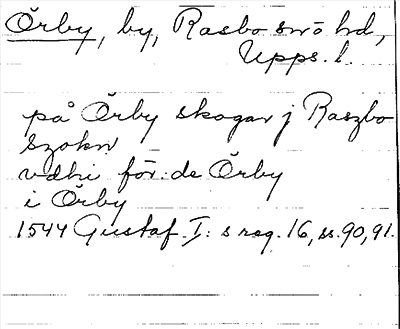 Örby, by, Rasbo sn o hd,
Upps. l.
på Örby skogar j Raszbo
Szokn
vdhi för:de Örby
i Örby
1544 Gustaf I:s reg. 16, ss. 90, 91.